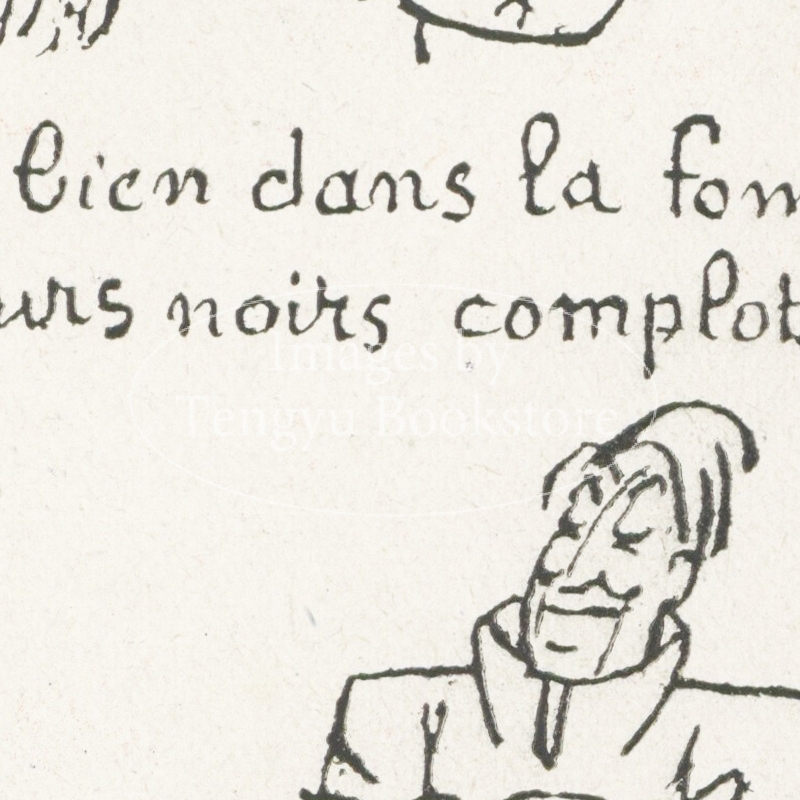 bien dans la fom
urs noirs complot
Images by
Tengyu Bookstore